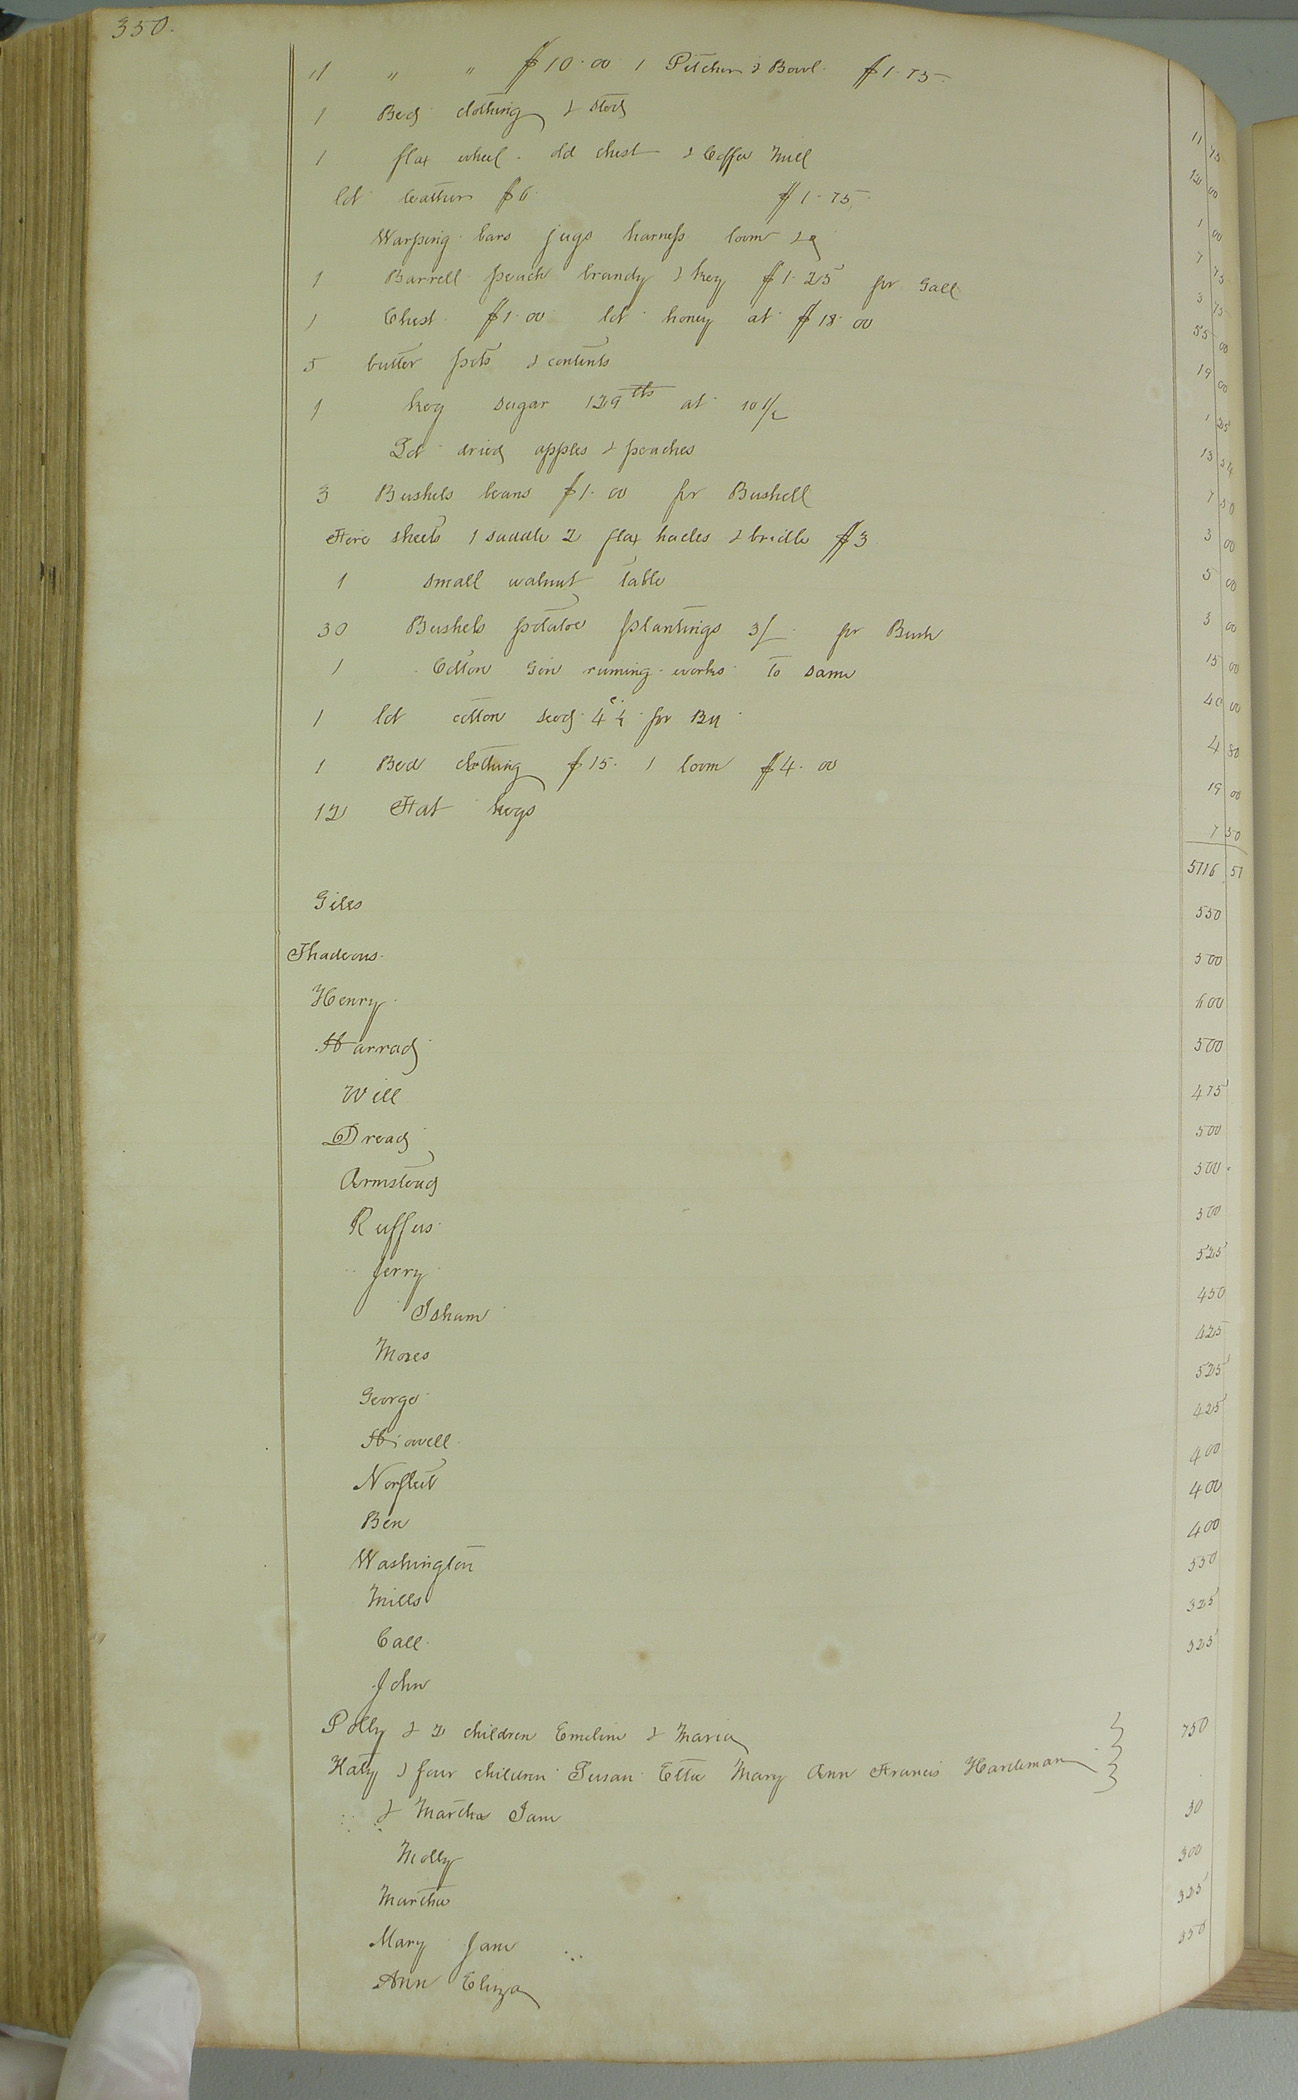 350.
11 " " $10.00 1 Pitcher & Bowl $1.75 11 75
1 Bed clothing & sted 120 00
1 flax wheel old chest & Coffee Mill 1 00
lot leather $6 $1.75 7 75
Warping bars jugs harness loom &c 3 75
1 Barrell peach brandy & keg $1.25 per Gall 55 00
1 Chest $1.00 lot honey at $18.00 19 00
5 butter pots & contents 1 25
1 keg sugar 129 lbs at 10 1/2 13 54
Lot dried apples & peaches 7 50
3 Bushels beans $1.00 per Bushell 3 00
Five sheets 1 saddle 2 flax hacles & bridle $3 5 00
1 small walnut table 3 00
30 Bushels potatoe plantings 3/ per Bush 15 00
1 Cotton Gin runing works to same 40 00
1 lot cotton seed 4 c per Bu 4 80
1 Bed clothing $15. 1 loom $4.00 19 00
12 Fat hogs 7 50
5716 51
Giles 550
Thadeous. 500
Henry 600
Harrad 500
Will 475
Dread 500
Armstead 500
Ruffus 500
Jerry 525
Isham 450
Moses 425
George 525
Howell 425
Norfleet 400
Ben 400
Washington 400
Mills 550
Call 325
John 325
Polly & 2 children Emeline & Maria 750
Katy & four children Susan Etta Mary Ann Francis Hardeman
& Martha Jane 50
Molly 300
Martha 325
Mary Jane 350
Ann Eliza